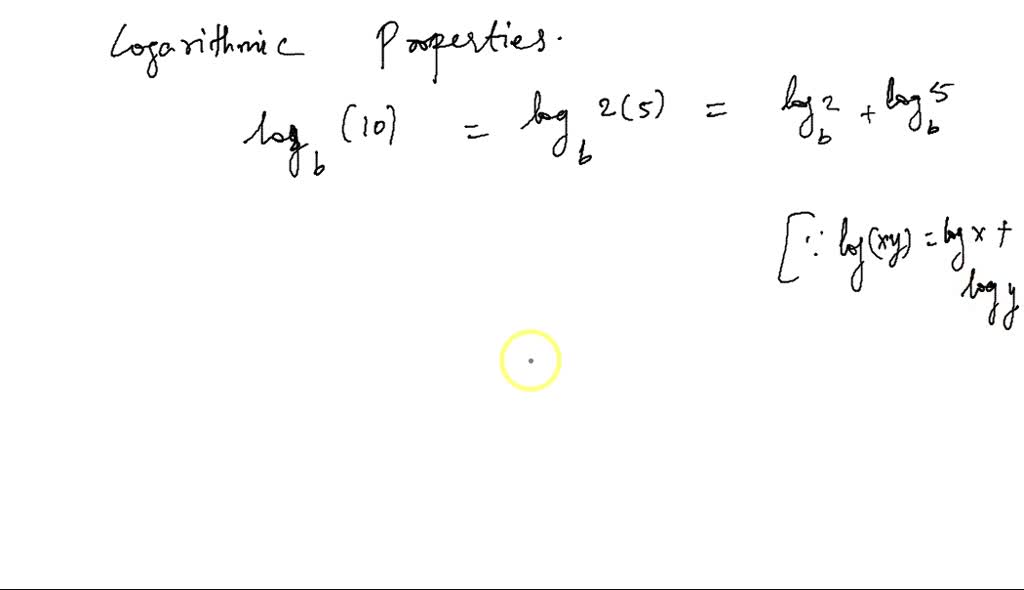 Logarithmic Properties.
log_b (10) = log_b 2(5) = log_b 2 + log_b 5
[∵ log(xy) = log x +
log y